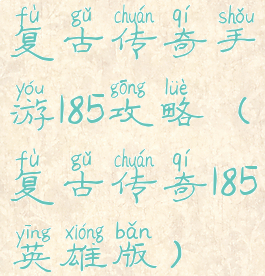 fù gǔ chuán qí shǒu
复古传奇手
yóu gōng lüè
游185攻略（
fù gǔ chuán qí
复古传奇185
yīng xióng bǎn
英雄版）